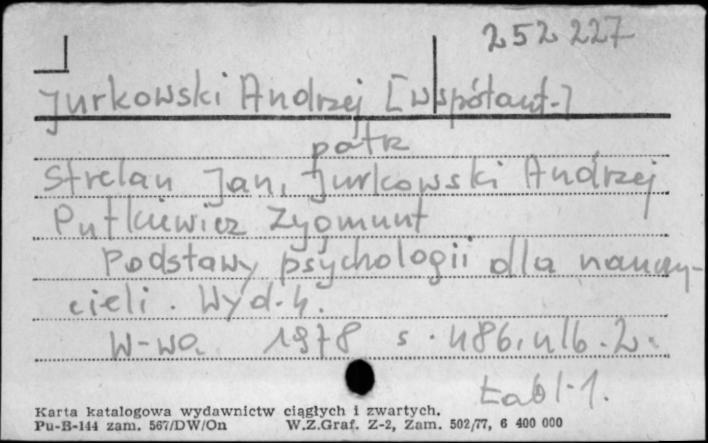 252 227
Jurkowski Andrzej [współaut.]
patrz
Strelau Jan, Jurkowski Andrzej
Putkiewicz Zygmunt
Podstawy psychologii dla nauczy-
cieli. Wyd. 4.
W-wa 1978 s. 486, nlb. 2.
tabl. 1.
Karta katalogowa wydawnictw ciągłych i zwartych.
Pu-B-144 zam. 567/DW/On W.Z.Graf. Z-2, Zam. 502/77, 6 400 000